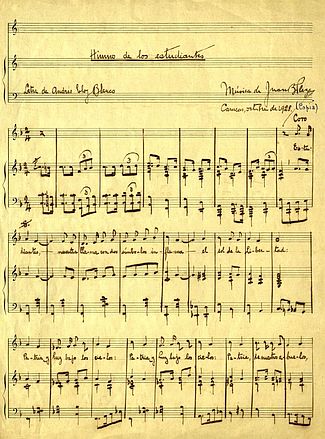 Himno de los estudiantes
Letra de Andrés Eloy Blanco
Música de Juan B. Plaza
Caracas, octubre de 1928. (Copia)
Coro
Estu-
diantes, nuestra llama con dos símbolos in-flama el sol de la li-ber-tad:
Pa-tria y luz bajo los cielos: Patria y luz bajo los cielos: Patria,